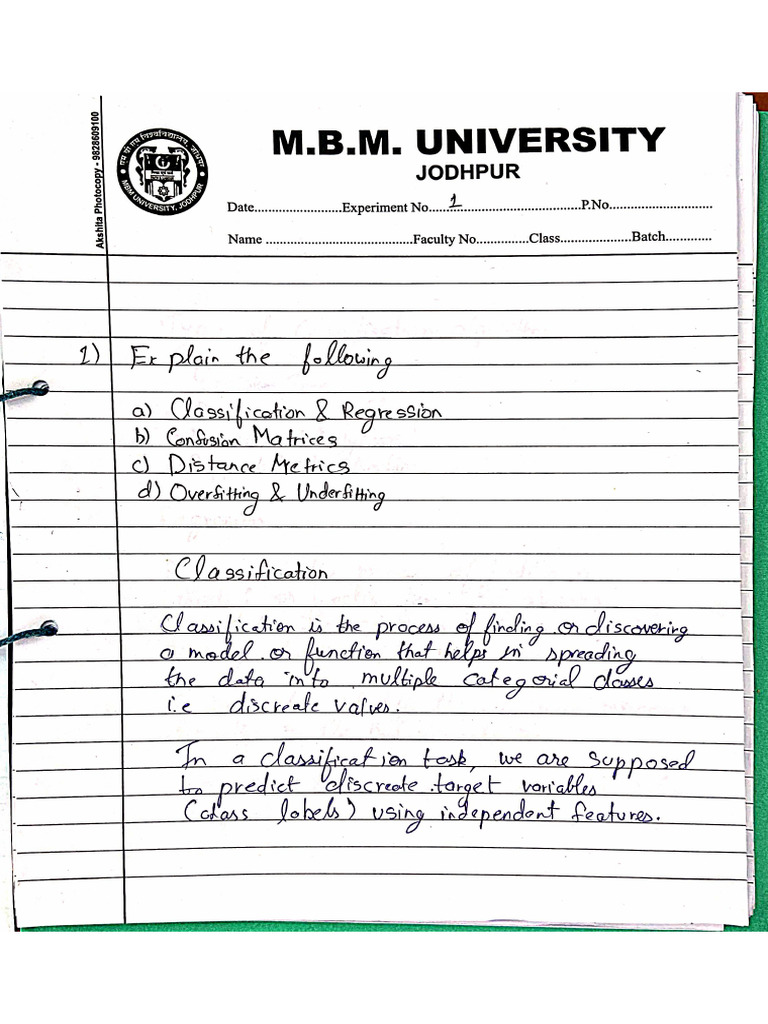 Akshita Photocopy - 9828609100
MBM UNIVERSITY, JODHPUR
M.B.M. UNIVERSITY
JODHPUR
Date..........................Experiment No......1....................................P.No...............................
Name ............................................Faculty No...............Class.....................Batch.............
1) Explain the following
a) Classification & Regression
b) Confusion Matrices
c) Distance Metrics
d) Overfitting & Underfitting
Classification
Classification is the process of finding or discovering
a model or function that helps in spreading
the data into multiple categorial classes
i.e discreate values.
In a classification task, we are supposed
to predict discreate target variables
(class labels) using independent features.